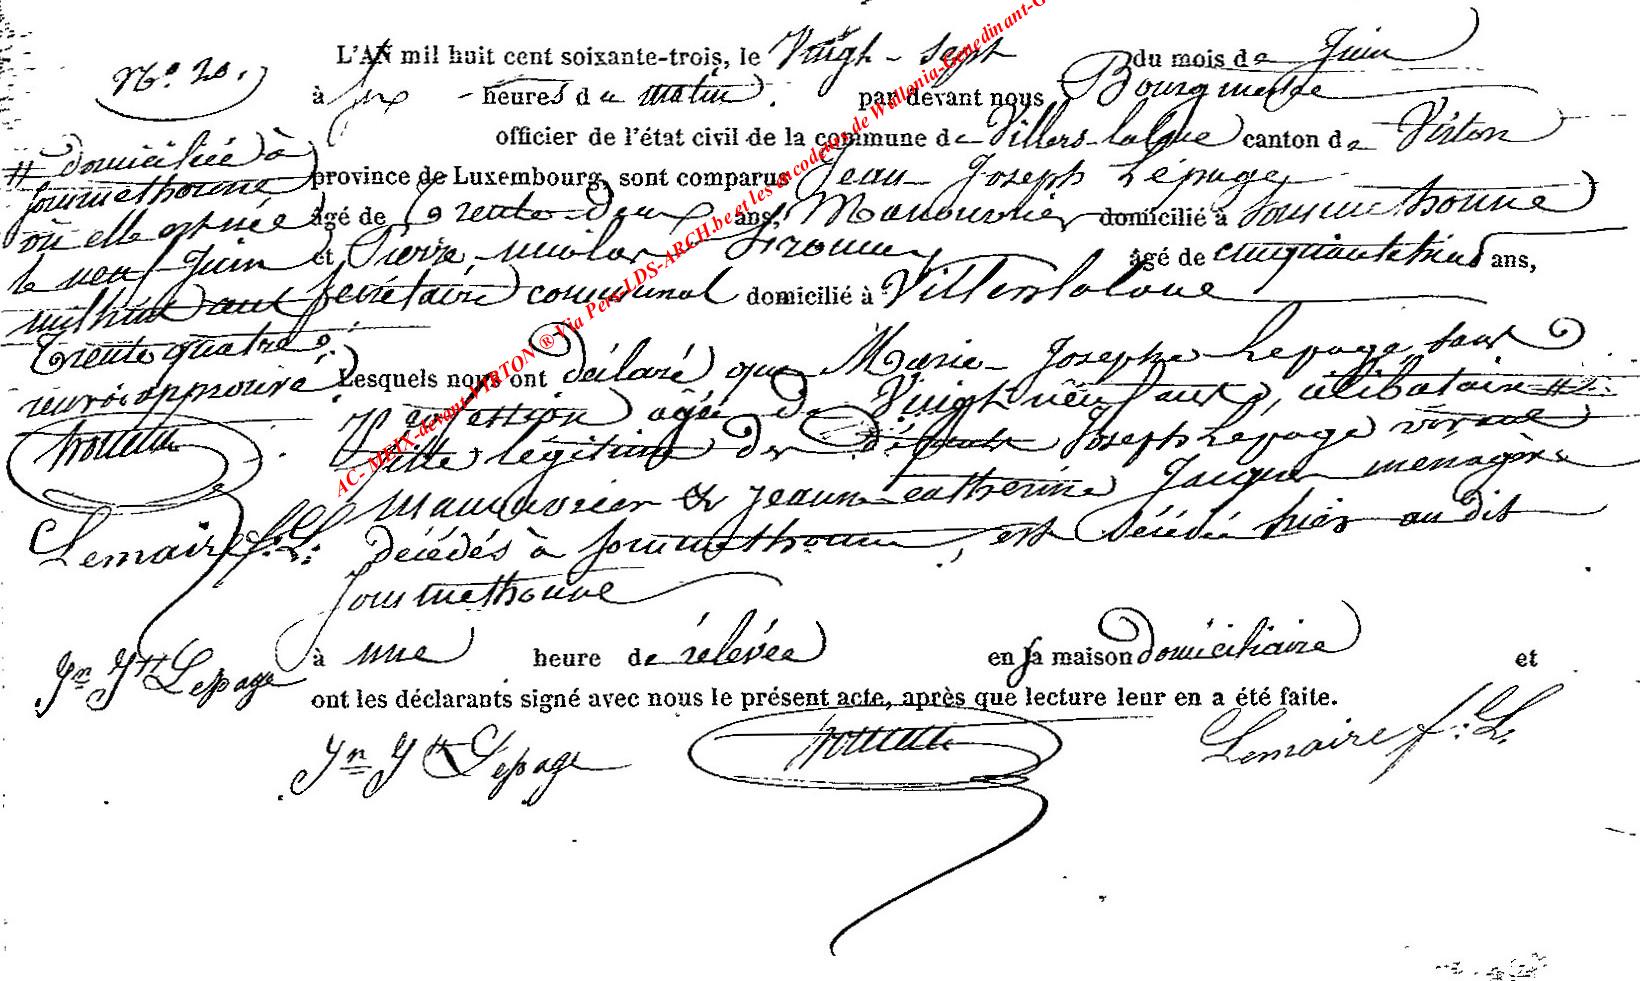 N.o 20.
L'AN mil huit cent soixante-trois, le Vingt-sept du mois de Juin
à six heures du matin. par devant nous Bourgmestre
officier de l'état civil de la commune de Villers-laloue canton de Virton
province de Luxembourg, sont comparus Jean Joseph Lépage
âgé de Trente-deux ans, Manouvrier domicilié à Sommethonne
et Pierre nicolas âgé de cinquante trois ans,
Secrétaire communal domicilié à Villerslaloue
Lesquels nous ont déclaré que Marie Josephe Lepage sans
Profession agée de Vingt neuf ans, célibataire #
Fille légitime des défunts Joseph Lepage vivant
manouvrier & Jeanne catherine Jacques ménagère
décédés à Sommethonne, est décédée hier audit
Sommethonne
à une heure de rélévée en sa maison domiciliaire et
ont les déclarants signé avec nous le présent acte, après que lecture leur en a été faite.
Jn Jh Lepage
Lemaire f: L:
# domiciliée à
Sommethonne
où elle est née
le neuf Juin
mil huit cent
Trente quatre.
renvoi approuvé
Lemaire f: L:
Jn Jh Lepage
AC- MEIX-devant-VIRTON ® Via Pers-LDS-ARCH.be et les encodeurs de Wallonia-Genedinant-G